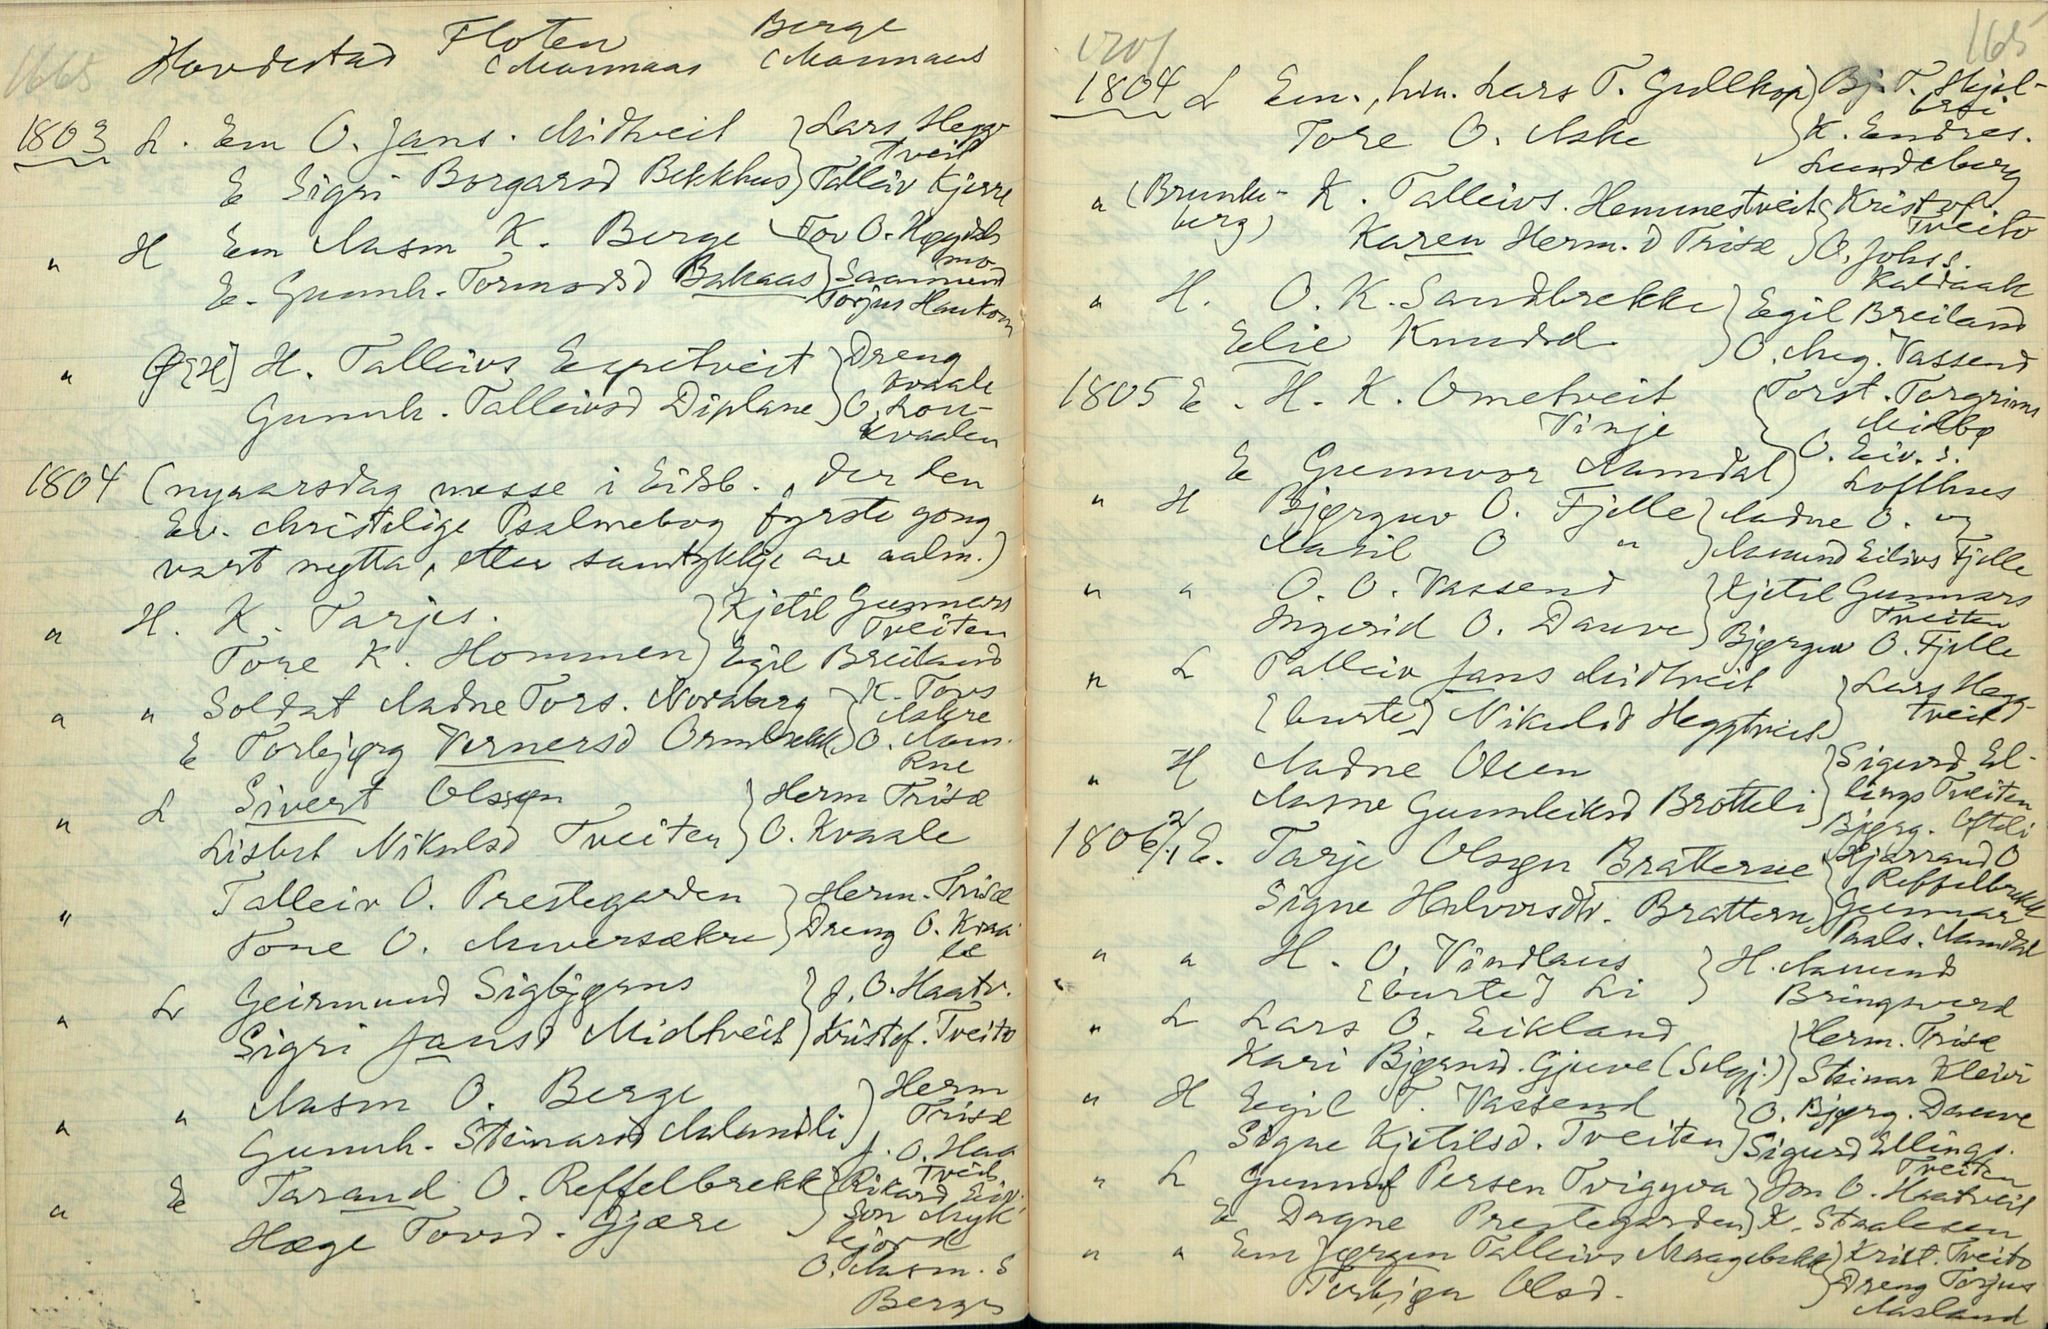 1665 Hovdestad Floten Berge
(Mannaas (Mannaas
1803 L. Em O. Jans. Midtveit } Lars Hegg-
tveit
E Sigri Borgarsd Bekkhus } Talleiv Kjerre
" H Em Aasm K. Berge } Tov O. Heggdals
mo
E. Gunnh. Tormodsd Bakaas } Saamund
Torjus Haukom
" H. Talleivs Espetveit } Dreng
Kvaale
Gunnh. Talleivsd Diplane } O. Lou-
Kvaalen
1804 (nyaarsdag messe i Eidsb., der den
Ev. christelige Psalmebog fyrste gong
vart nytta, etter samtykkje av aalm.)
" H. K. Tarjes. } Kjetil Gunnars
Tveiten
Tore K. Hommen } Egil Breiland
" " Soldat Aadne Tors. Nordberg } K. Tovs
Aakre
E Torbjørg Vernersd Ormbrekk } O. Aam.
Rue
" L Sivert Olsson } Herm Trisæ
Lisbet Nikulsd Tveiten } O. Kvaale
" Talleiv O. Prestegarden } Herm. Trisæ
Tone O. Miversækre } Dreng O. Kvaa
le
" L Geirmund Sigbjørns } J. O. Haatv.
Sigri Jansd Midtveit } Kristof. Tveito
" " Aasm O. Berge } Herm
Trisæ
Gunnh. Steinarsd Aalandli } J. O. Haa
tveit
" E Tarand O. Reffelbrekk } Rikard Eiv.
son Myk
Hæge Tovsd. Gjære } ejord
O. Aasm. S
Berge
1701 165
1804 L Em., hm. Lars T. Gullkop } Bj. T. Skjel-
brei
Tore O. Aske } K. Endres.
Lundeberg
" (Brunke- K. Talleivs. Hemmestveit } Kristof
berg) Tveito
Karen Herm. d Trisæ } O. Johs s.
Kaldaak
" H. O. K. Sandbrekke } Egil Breiland
Elie Knudsd } O. Aug. Vassend
1805 E. H. K. Ometveit } Torst. Torgrims
Vinje Midbø
O. Eiv. s.
E Gunnvor Aamdal } Lofthus
" H Bjørguv O. Fjelle } Aadne O. og
Aasil O " } Aamund Eilivs Fjelle
" " O. O. Vassend } Kjetil Gunnars
Tveiten
Ingerid O. Dauve } Bjørguv O. Fjelle
" L Talleiv Jans Midtveit } Lars Hegg-
tveit
[burte] Nikulsd Heggtveit
" H Aadne Olsen } Sigurd El-
lings Tveiten
Aasne Gunnleiksd Brotteli } Bjørg. Ofteli
1806 2/1 E. Tarje Olsøn Bratterue } Kjærrand O
Reffelbrekk
Signe Halvorsdtr. Bratterue } Gunnar
Paals. Aamdal
" " H. O. Vindlaus } H. Aamunds
[burte] Li Bringsverd
" L Lars O. Eikland } Herm. Trisæ
Kari Bjørnsd. Gjuve (Selgj.) } Steinar Kleivi
" H Egil T. Vassend } O. Bjørg. Dauve
Signe Kjetilsd. Tveiten } Sigurd Ellings.
Tveiten
" L Gunnuf Persen Tvigyva } Jon O. Haatveit
E Dagne Prestegarden } K. Staalesen
" " Em Jørgen Talleivs Maagebekk } Krist. Tveito
Torbjør Olsd. } Dreng Torjus
Aasland